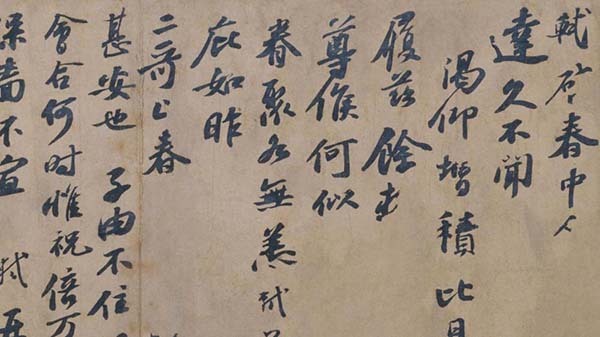 軾啓春中人
達久不聞
渴仰增積比日
履茲餘寒
尊候何似
眷聚各無恙軾
庇如昨
二哥上春
甚安也 子由不住
會合何時惟祝倍万
保嗇不宣 軾再